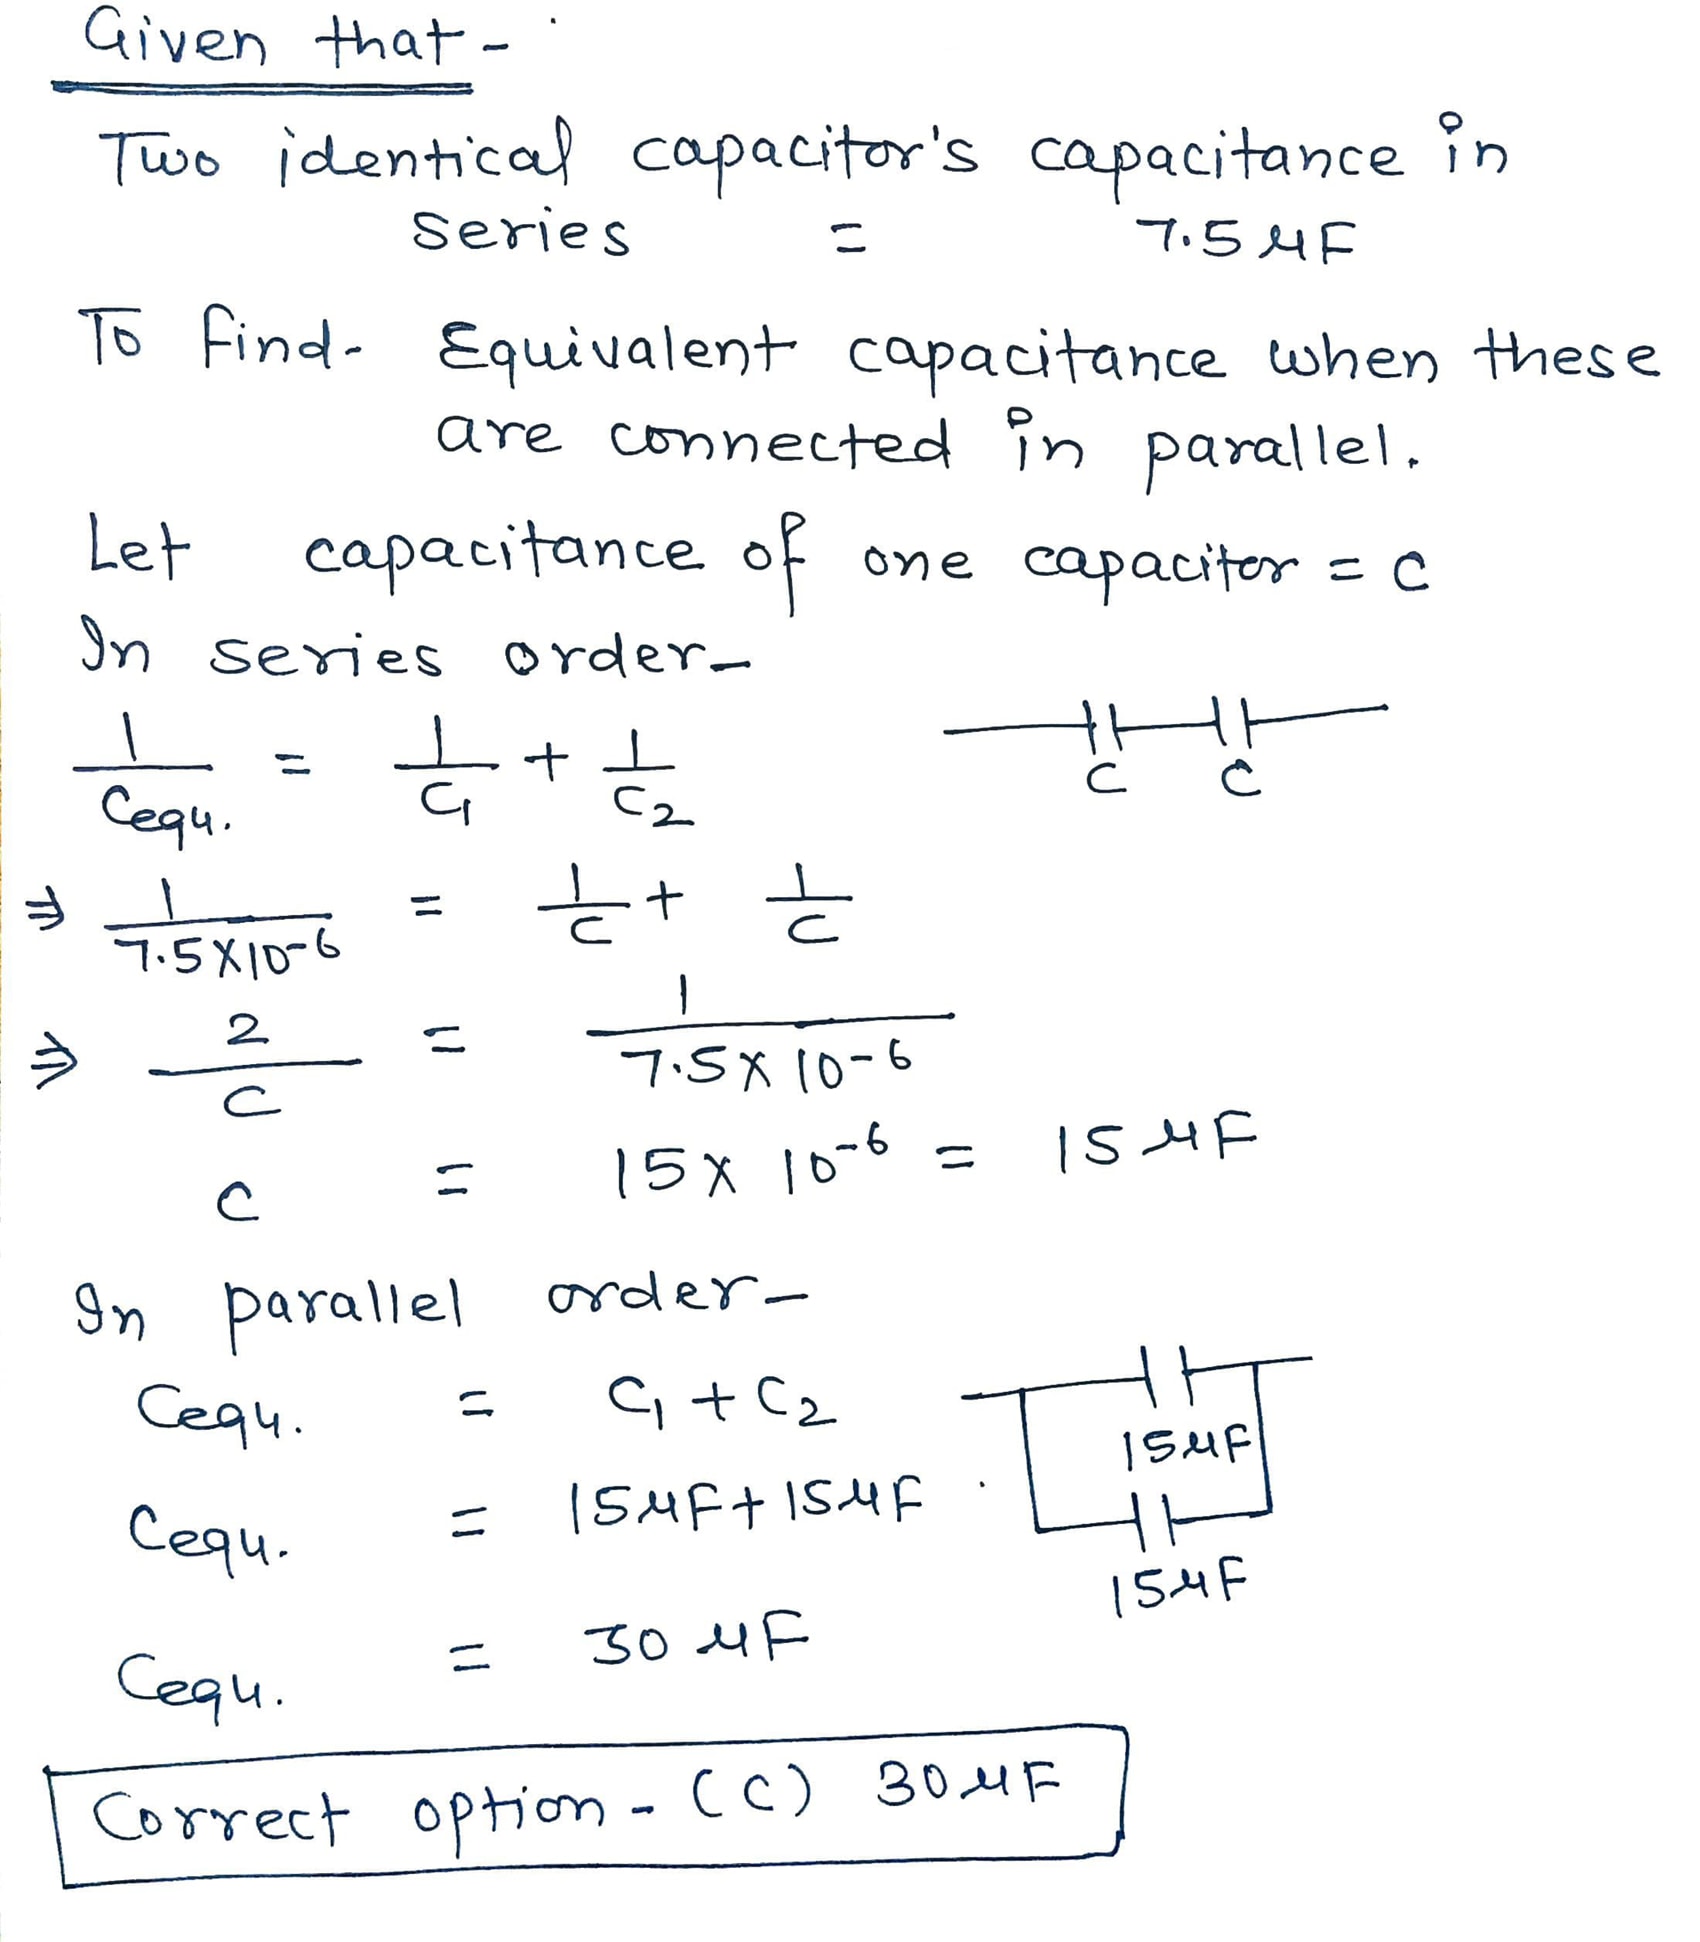 Given that -
Two identical capacitor's capacitance in
series = 7.5 μF
To find- Equivalent capacitance when these
are connected in parallel.
Let capacitance of one capacitor = C
In series order-
1/Cequ. = 1/C1 + 1/C2
C C
⇒ 1/7.5X10-6 = 1/C + 1/C
⇒ 2/C = 1/7.5X10-6
C = 15X10⁻⁶ = 15 μF
In parallel order-
Cequ. = C1 + C2
15μF
Cequ. = 15μF + 15μF
15μF
Cequ. = 30 μF
Correct option - (C) 30 μF